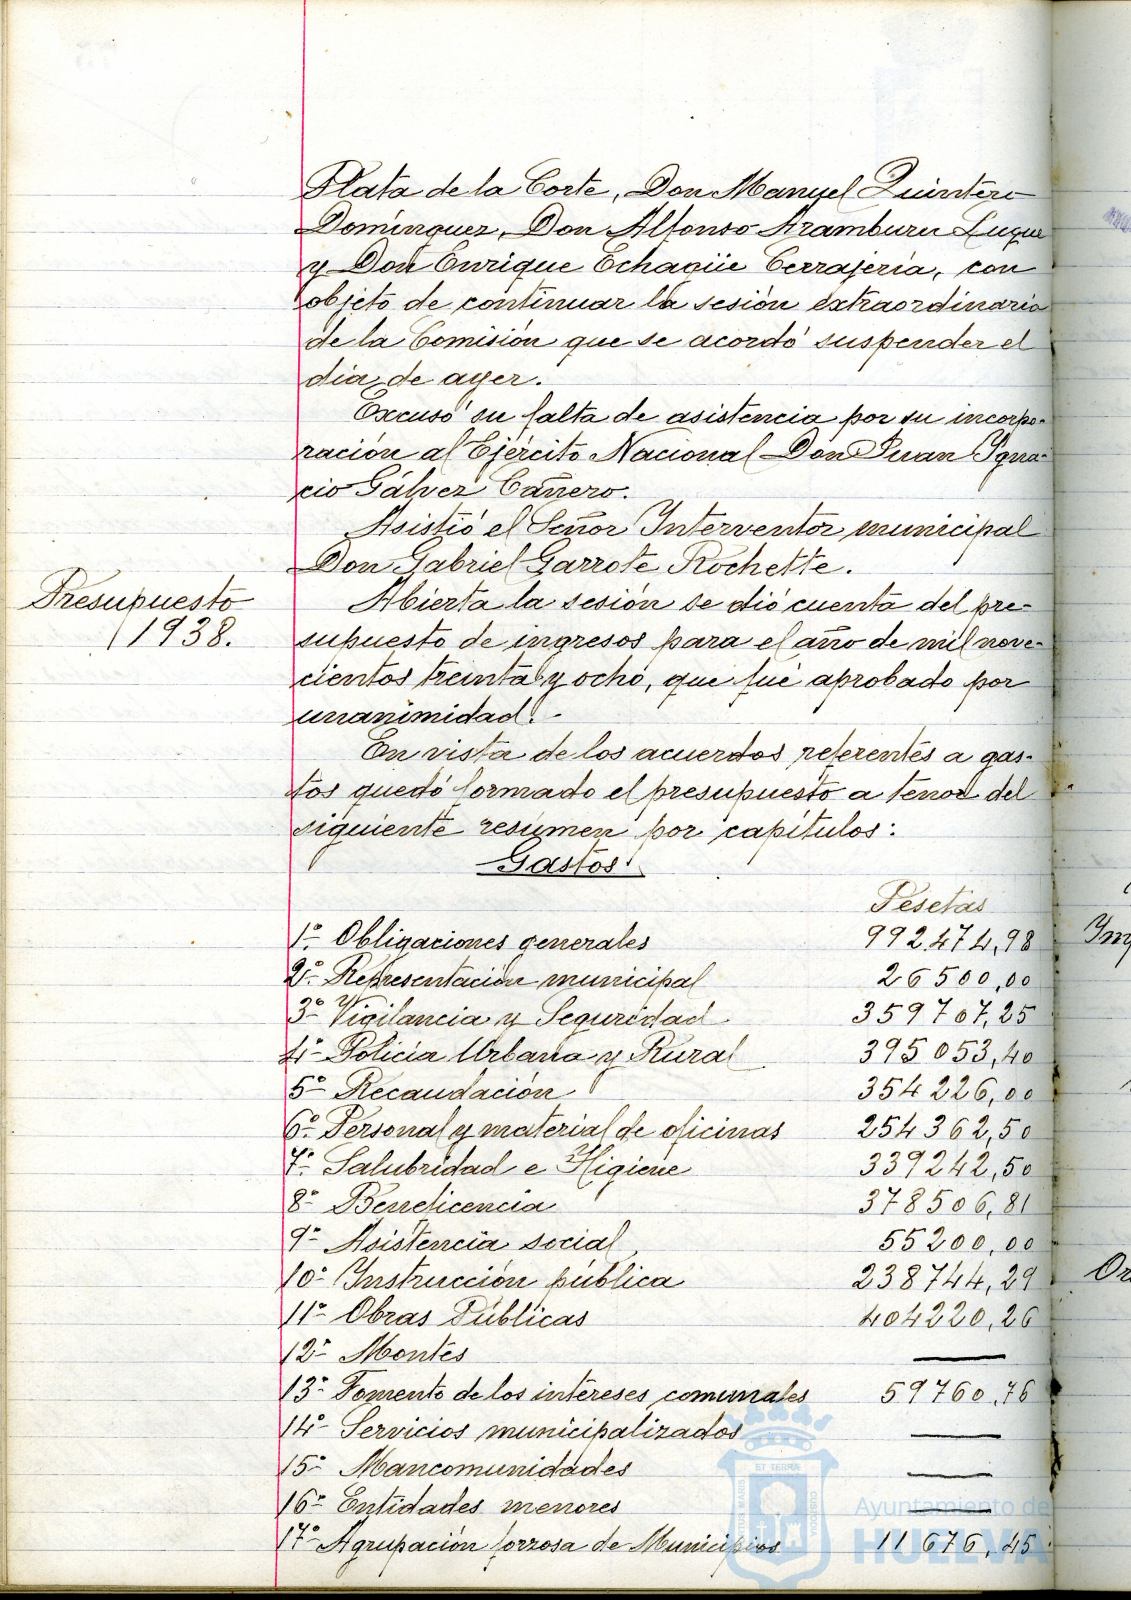 Plata de la Corte, Don Manuel Quintero
Domínguez, Don Alfonso Aramburu Luque
y Don Enrique Echagüe Cerrajería, con
objeto de continuar la sesión extraordinaria
de la Comisión que se acordó suspender el
dia de ayer.
Excusó su falta de asistencia por su incorpo-
ración al Ejército Nacional Don Juan Igna-
cio Gálvez Cañero.
Asistió el Señor Interventor municipal
Don Gabriel Garrote Rochette.
Presupuesto
1938.
Abierta la sesión se dió cuenta del pre-
supuesto de ingresos para el año de mil nove-
cientos treinta y ocho, que fué aprobado por
unanimidad.-
En vista de los acuerdos referentes a gas-
tos quedó formado el presupuesto a tenor del
siguiente resúmen por capítulos:
Gastos
Pesetas
1º Obligaciones generales 992.474,98
2º Representación municipal 26500,00
3º Vigilancia y Seguridad 359707,25
4º Policía Urbana y Rural 395053,40
5º Recaudación 354226,00
6º Personal y material de oficinas 254362,50
7º Salubridad e Higiene 339242,50
8º Beneficencia 378506,81
9º Asistencia social 55200,00
10º Instrucción pública 238744,29
11º Obras Públicas 404220,26
12º Montes —
13º Fomento de los intereses comunales 59760,76
14º Servicios municipalizados —
15º Mancomunidades —
16º Entidades menores —
17º Agrupación forzosa de Municipios 11676,45
Ayuntamiento de
HUELVA